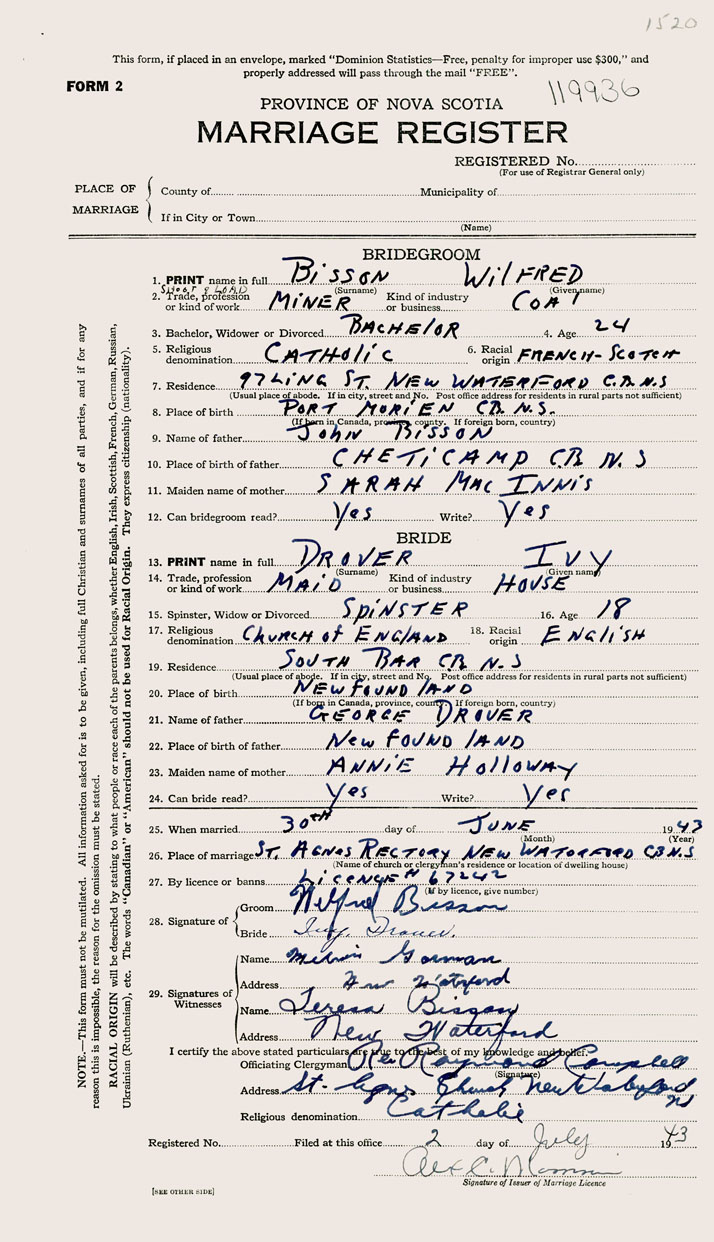 1520
This form, if placed in an envelope, marked "Dominion Statistics—Free, penalty for improper use $300," and
properly addressed will pass through the mail "FREE".
FORM 2
119936
PROVINCE OF NOVA SCOTIA
MARRIAGE REGISTER
REGISTERED No.
(For use of Registrar General only)
PLACE OF MARRIAGE
County of Municipality of
If in City or Town
(Name)
BRIDEGROOM
1. PRINT name in full BISSON WILFRED
(Surname) (Given name)
2. Trade, profession or kind of work SHOOT & LOAD MINER Kind of industry or business COAL
3. Bachelor, Widower or Divorced BACHELOR 4. Age 24
5. Religious denomination CATHOLIC 6. Racial origin FRENCH-SCOTCH
7. Residence 97 LING ST. NEW WATERFORD C.B. N.S
(Usual place of abode. If in city, street and No. Post office address for residents in rural parts not sufficient)
8. Place of birth PORT MORIEN CB. N.S.
(If born in Canada, province, county. If foreign born, country)
9. Name of father JOHN BISSON
10. Place of birth of father CHETICAMP CB N.S
11. Maiden name of mother SARAH MAC INNIS
12. Can bridegroom read? Yes Write? Yes
BRIDE
13. PRINT name in full DROVER IVY
(Surname) (Given name)
14. Trade, profession or kind of work MAID Kind of industry or business HOUSE
15. Spinster, Widow or Divorced SPINSTER 16. Age 18
17. Religious denomination CHURCH of ENGLAND 18. Racial origin ENGLISH
19. Residence SOUTH BAR CB N.S
(Usual place of abode. If in city, street and No. Post office address for residents in rural parts not sufficient)
20. Place of birth NEWFOUNDLAND
(If born in Canada, province, county. If foreign born, country)
21. Name of father GEORGE DROVER
22. Place of birth of father NEWFOUNDLAND
23. Maiden name of mother ANNIE HOLLOWAY
24. Can bride read? Yes Write? Yes
25. When married 30TH day of JUNE 1943
(Month) (Year)
26. Place of marriage ST. AGNES RECTORY NEW WATERFORD CB N.S
(Name of church or clergyman's residence or location of dwelling house)
27. By licence or banns LICENCE # 67242
(If by licence, give number)
28. Signature of Groom Wilfred Bisson
Bride Ivy Drover.
29. Signatures of Witnesses
Name Gorman
Address New Waterford
Name Teresa Bisson
Address New Waterford
I certify the above stated particulars are true to the best of my knowledge and belief.
Officiating Clergyman Rev Raymond Campbell
(Signature)
Address St. Agnes Church New Waterford NS
Religious denomination Catholic
Registered No. Filed at this office 2 day of July 1943
Alex C.
Signature of Issuer of Marriage Licence
[SEE OTHER SIDE]
NOTE.—This form must not be mutilated. All information asked for is to be given, including full Christian and surnames of all parties, and if for any
reason this is impossible, the reason for the omission must be stated.
RACIAL ORIGIN will be described by stating to what people or race each of the parents belongs, whether English, Irish, Scottish, French, German, Russian,
Ukrainian (Ruthenian), etc. The words "Canadian" or "American" should not be used for Racial Origin. They express citizenship (nationality).